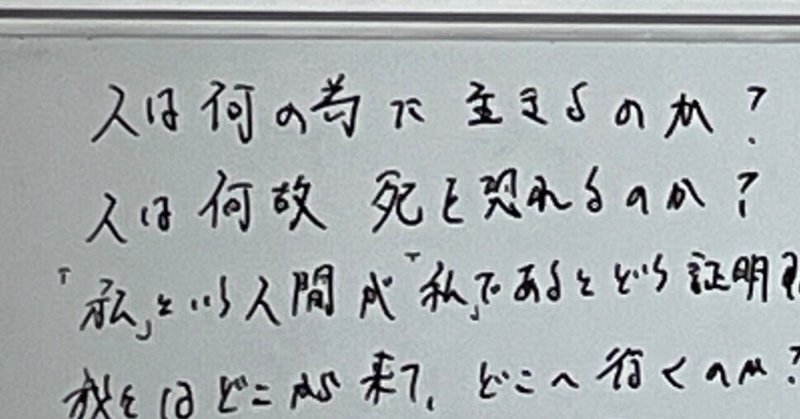 人は何の為に生きるのか?
人は何故 死を恐れるのか?
「私」という人間が「私」であるとどう証明
我々はどこから来て、どこへ行くのか?